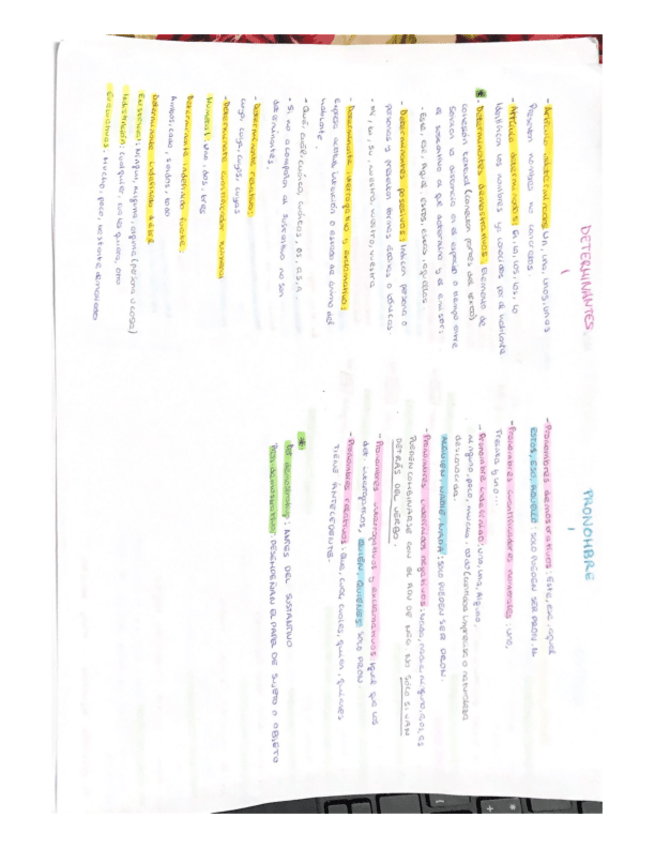 DETERMINANTES
- Artículo indeterminado: Un, una, unos, unas
Presentan nombres no concretos.
- Artículo determinado: El, la, los, las, lo
Identifican los nombres ya conocidos por el hablante
- Determinantes demostrativos: Elemento de
cohesión textual (conectan partes del texto)
Señalan la distancia en el espacio o tiempo entre
el sustantivo al que determina y el emisor;
- Este, ese, aquel, estos, esos, aquellos
- Determinantes posesivos: Indican persona o
personas y presentan formas átonas o tónicas
- Mi, tu, su, nuestro, vuestro, vuestra
- Determinante interrogativo y exclamativo:
expresa actitud, intención o estado de ánimo del
hablante.
- Qué, cuál, cuánto, cuántos,
- Si no acompañan al sustantivo no son
determinantes.
- Determinante relativo:
cuyo, cuya, cuyos, cuyas
- Determinante cuantificador numeral
Numeral: uno, dos, tres
Determinante indefinido fuerte:
Ambos, cada, sendos, todo
Determinante indefinido débil
Existencial: Ningún, ninguna, alguna (persona o cosa)
Indistinción: cualquier, cualesquiera, otro
Evaluativos: Mucho, poco, bastante, demasiado
PRONOMBRE
- Pronombres demostrativos: Este, ese, aquel
ESTOS, ESO, AQUELLO: SOLO PUEDEN SER PRON. N
- Pronombres cuantificadores numerales: uno,
treinta y uno...
- Pronombre indefinido: uno, una, alguno,
ninguno, poco, mucho, todo (cantidad imprecisa o naturaleza
desconocida.
ALGUIEN, NADIE, NADA: SOLO PUEDEN SER PRON.
- Pronombres indefinidos negativos: nada, nadie, ninguno,
PUEDEN COMBINARSE CON EL ADV DE NEG NO SÓLO SI VAN
DETRÁS DEL VERBO.
- Pronombres interrogativos y exclamativos: igual que los
det. interrogativos, QUIÉN, QUIENES: SOLO PRON
- Pronombres relativos: Que, cual, cuales, quien, quienes
TIENE ANTECEDENTE.
Det demostrativo: ANTES DEL SUSTANTIVO
Pron demostrativo: DESEMPEÑAN EL PAPEL DE SUJETO O OBJETO